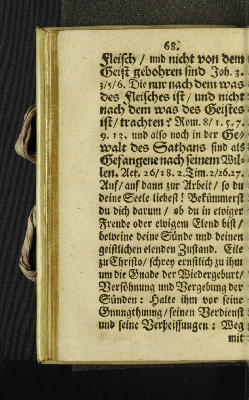 68.
Fleisch / und nicht von dem
Geist gebohren sind Joh. 3.
3/5/6. Die nur nach dem was
des Fleisches ist / und nicht
nach dem was des Geistes
ist / trachten: Rom. 8/1.5.7.
9.13. und also noch in der Ge/
walt des Sathans sind als
Gefangene nach seinem Wil-
len. Act. 26/18. 2. Tim. 2/26.27.
Auf / auf dann zur Arbeit / so du
deine Seele liebest! Bekümmerst
du dich darum / ob du in ewiger
Freude oder ewigem Elend bist /
beweine deine Sünde und deinen
geistlichen elenden Zustand. Eile
zu Christo / schrey ernstlich zu ihm
um die Gnade der Wiedergeburt /
Versöhnung und Vergebung der
Sünden: Halte ihm vor seine
Gnungthuung / seinen Verdienst
und seine Verheissungen: Weg
mit